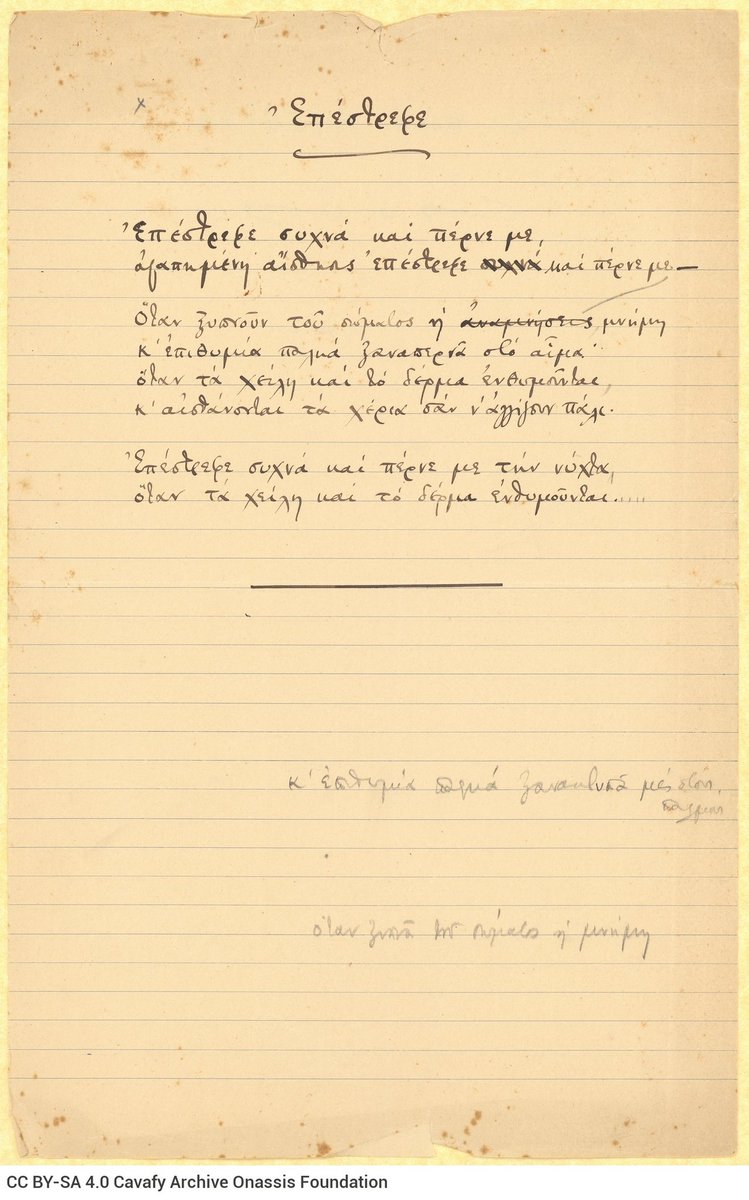 x
Ἐπέστρεφε
Ἐπέστρεφε συχνά καί πέρνε με,
ἀγαπημένη αἴσθησις ἐπέστρεφε συχνά καί πέρνε με —
Ὅταν ξυπνοῦν τοῦ σώματος ἡ ἀναμνήσεις μνήμη
κ' ἐπιθυμία παληά ξαναπερνᾶ στό αἷμα·
ὅταν τά χείλη καί τό δέρμα ἐνθυμοῦνται,
κ' αἰσθάνονται τά χέρια σάν ν' ἀγγίζουν πάλι.
Ἐπέστρεφε συχνά καί πέρνε με τήν νύχτα,
ὅταν τά χείλη καί τό δέρμα ἐνθυμοῦνται.....
κ' ἐπιθυμία παληά ξανακτυπᾶ μές στόν
ὅταν ξυπνᾶ τοῦ σώματος ἡ μνήμη
CC BY-SA 4.0 Cavafy Archive Onassis Foundation